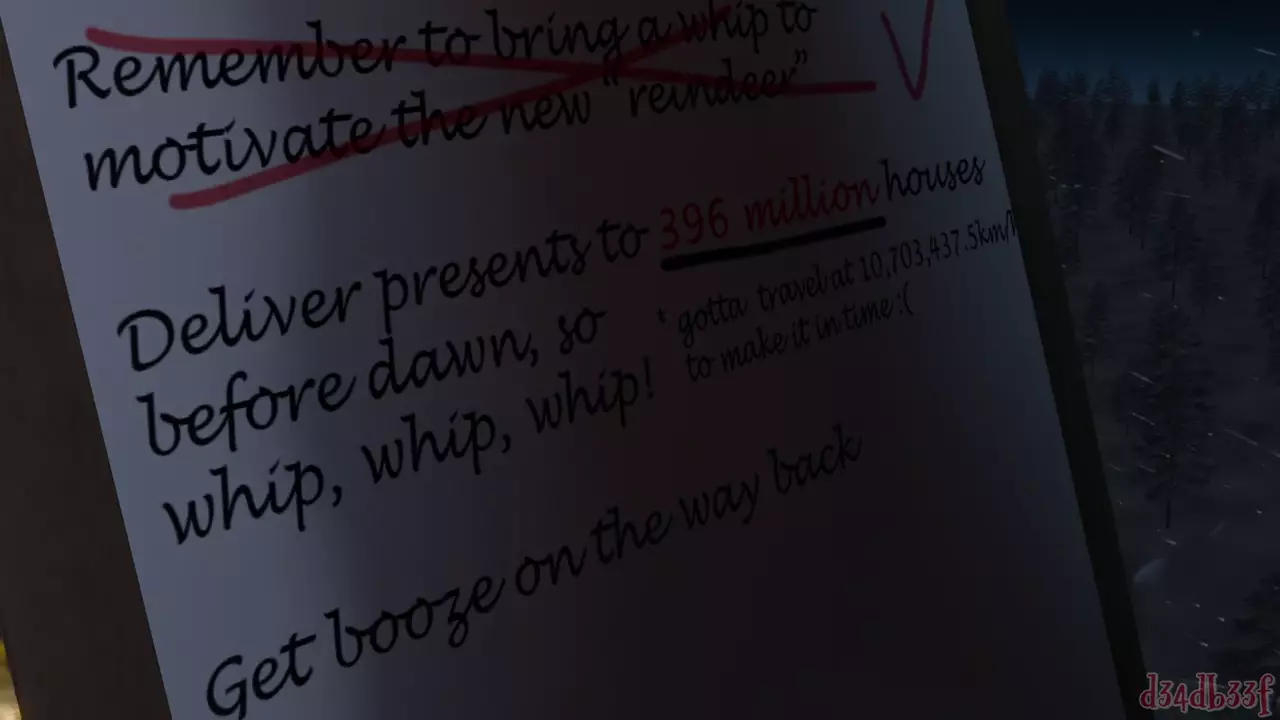 Remember to bring a whip to
motivate the new “reindeer”
Deliver presents to 396 million houses
before dawn, so
whip, whip, whip!
* gotta travel at 10,703,437.5km/h
to make it in time :(
Get booze on the way back
d34db33f